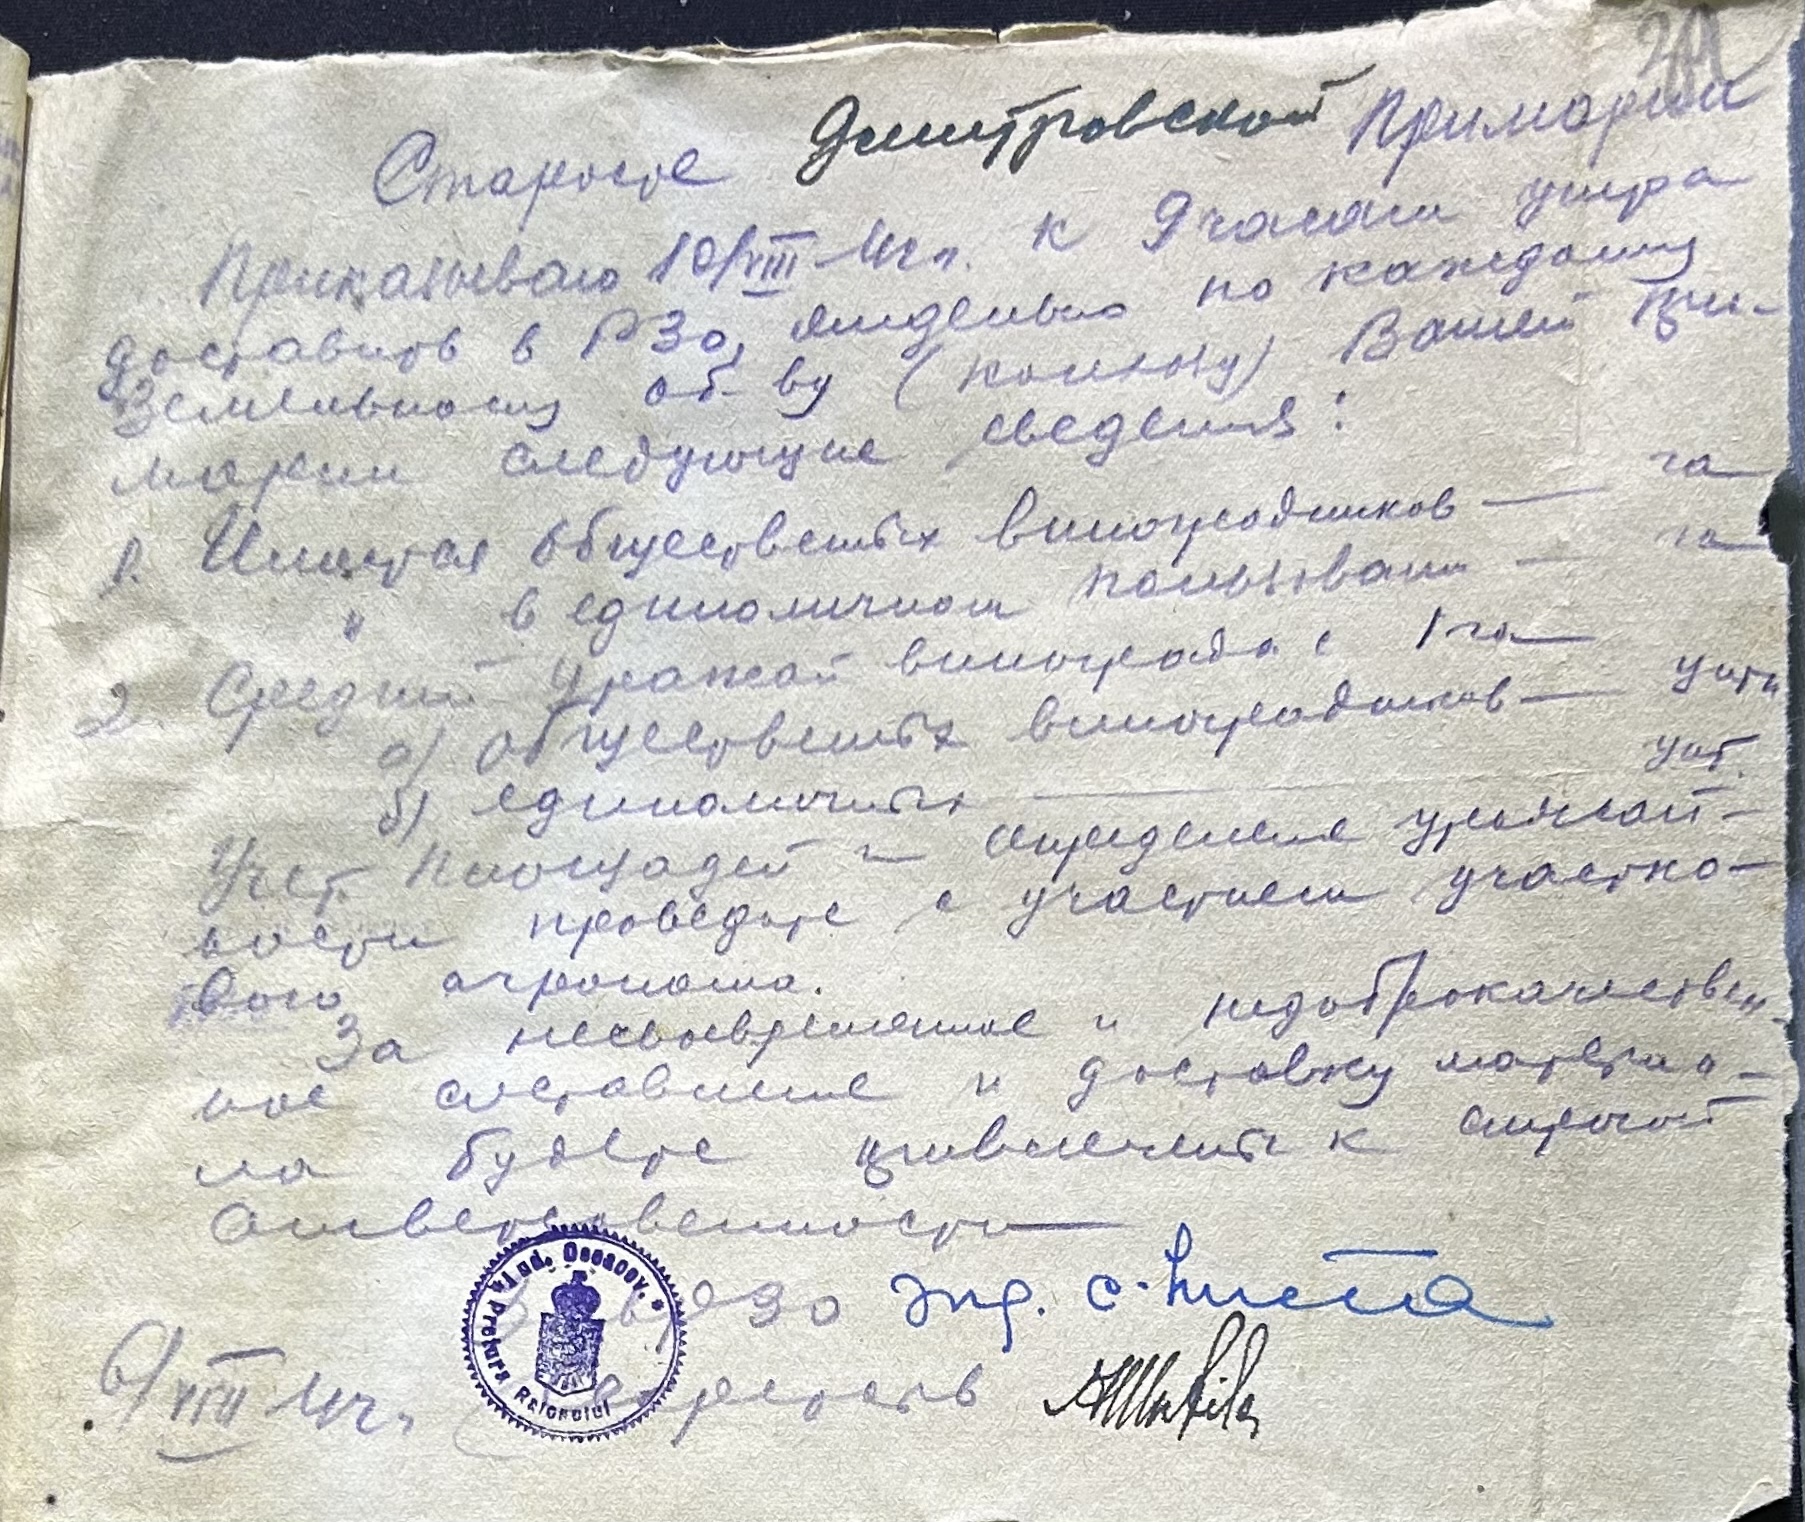 Старосте Дмитровской Примарии
Приказываю 10/VIII 42 г. к 9 часам утра
доставить в РЗО, отдельно по каждому
Земельному об-ву (колхозу) Вашей При-
марии следующие сведения:
1. Площадь общественных виноградников — га
" в единоличном пользовании — га
2. Средний урожай винограда с 1 га
а) общественных виноградников —
б) единоличных —
Учет площадей и определение урожай-
ности проведите с участием участко-
вого агронома.
За несвоевременное и недоброкачествен-
ное составление и доставку материа-
ла будете привлечены к строгой
ответственности
РЗО
6/VIII 42 г.
Pretura Raionului